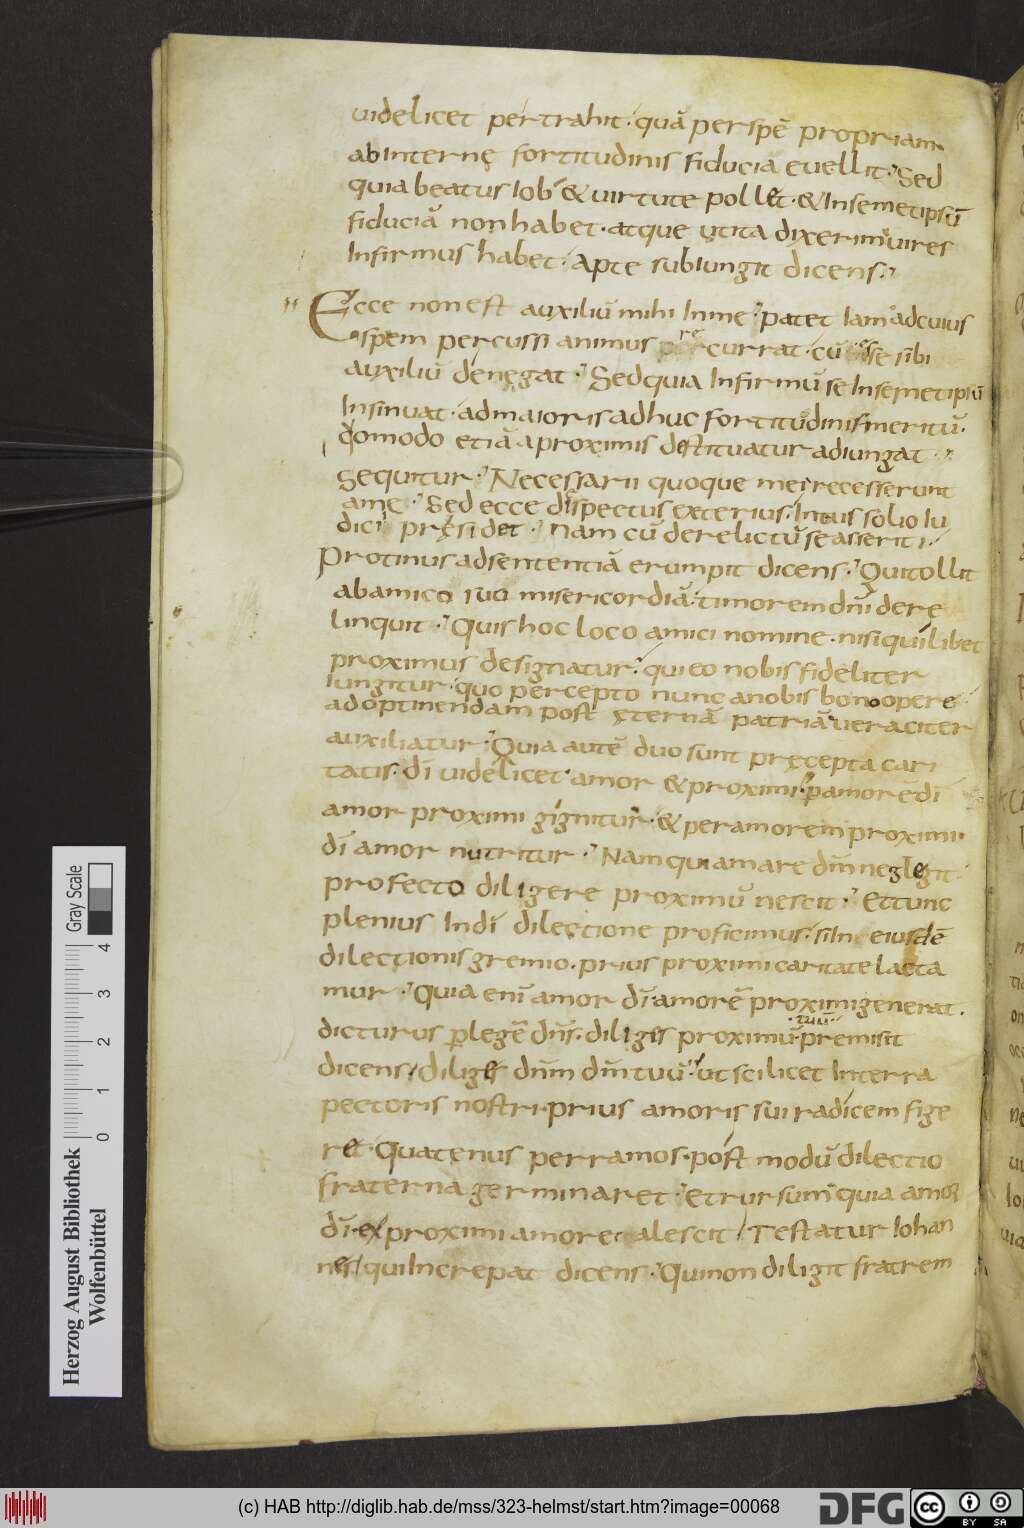 uidelicet pertrahit· quā perspē propriam·
abInternę fortitudinis fiducia euellit· Sed
quia beatus Iob & uirtute pollet· & Insemetipsū
fiduciā non habet· atque ut ita dixerim uires
Infirmus habet· Apte subIungit dicens·
Ecce non est auxiliū mihi Inme· patet Iam ad cuius
spem percussi animus recurrat· cū se sibi
auxiliū denegat· Sed quia Infirmū se Insemetipsū
Insinuat· ad maioris adhuc fortitudinis meritū·
quomodo etiā a proximis destituatur adiungat·
Sequitur· Necessarii quoque mei recesserunt
a me· Sed ecce dispectus exterius· Intus solio Iu
dici pręsidet· Nam cū derelictū se asserit·
Protinus ad sententiā erumpit dicens· Qui tollit
ab amico suo misericordiā· timorem dn̄i dere
linquit· Quis hoc loco amici nomine· nisi quilibet
proximus designatur· qui eo nobis fideliter
Iungitur· quo percepto nunc a nobis bono opere
ad optinendam post ęternā patriā ueraciter
auxiliatur· Quia autē duo sunt pręcepta cari
tatis· dī uidelicet amor & proximi· p amorē dī
amor proximi gignitur· & per amorem proximi·
dī amor nutritur· Nam qui amare dm̄ neglegit·
profecto diligere proximū nescit· Et tunc
plenius In dī dilectione proficimus· si In eiusdē
dilectionis gremio· prius proximi caritate lacta
mur· Quia enī amor dī amorē proximi generat·
dicturus p legē dn̄s· diliges proximū· tuū· premisit
dicens/ diliges dn̄m dm̄ tuū· ut scilicet In terra
pectoris nostri· prius amoris sui radicem fige
ret· Quatenus per ramos· post modū dilectio
fraterna germinaret· Et rursum quia amor
dī ex proximi amore coalescit/ Testatur Iohan
nes/ qui Increpat dicens· Qui non diligit fratrem
Gray Scale
0 1 2 3 4
Herzog August Bibliothek
Wolfenbüttel
(c) HAB http://diglib.hab.de/mss/323-helmst/start.htm?image=00068
DFG
cc BY SA